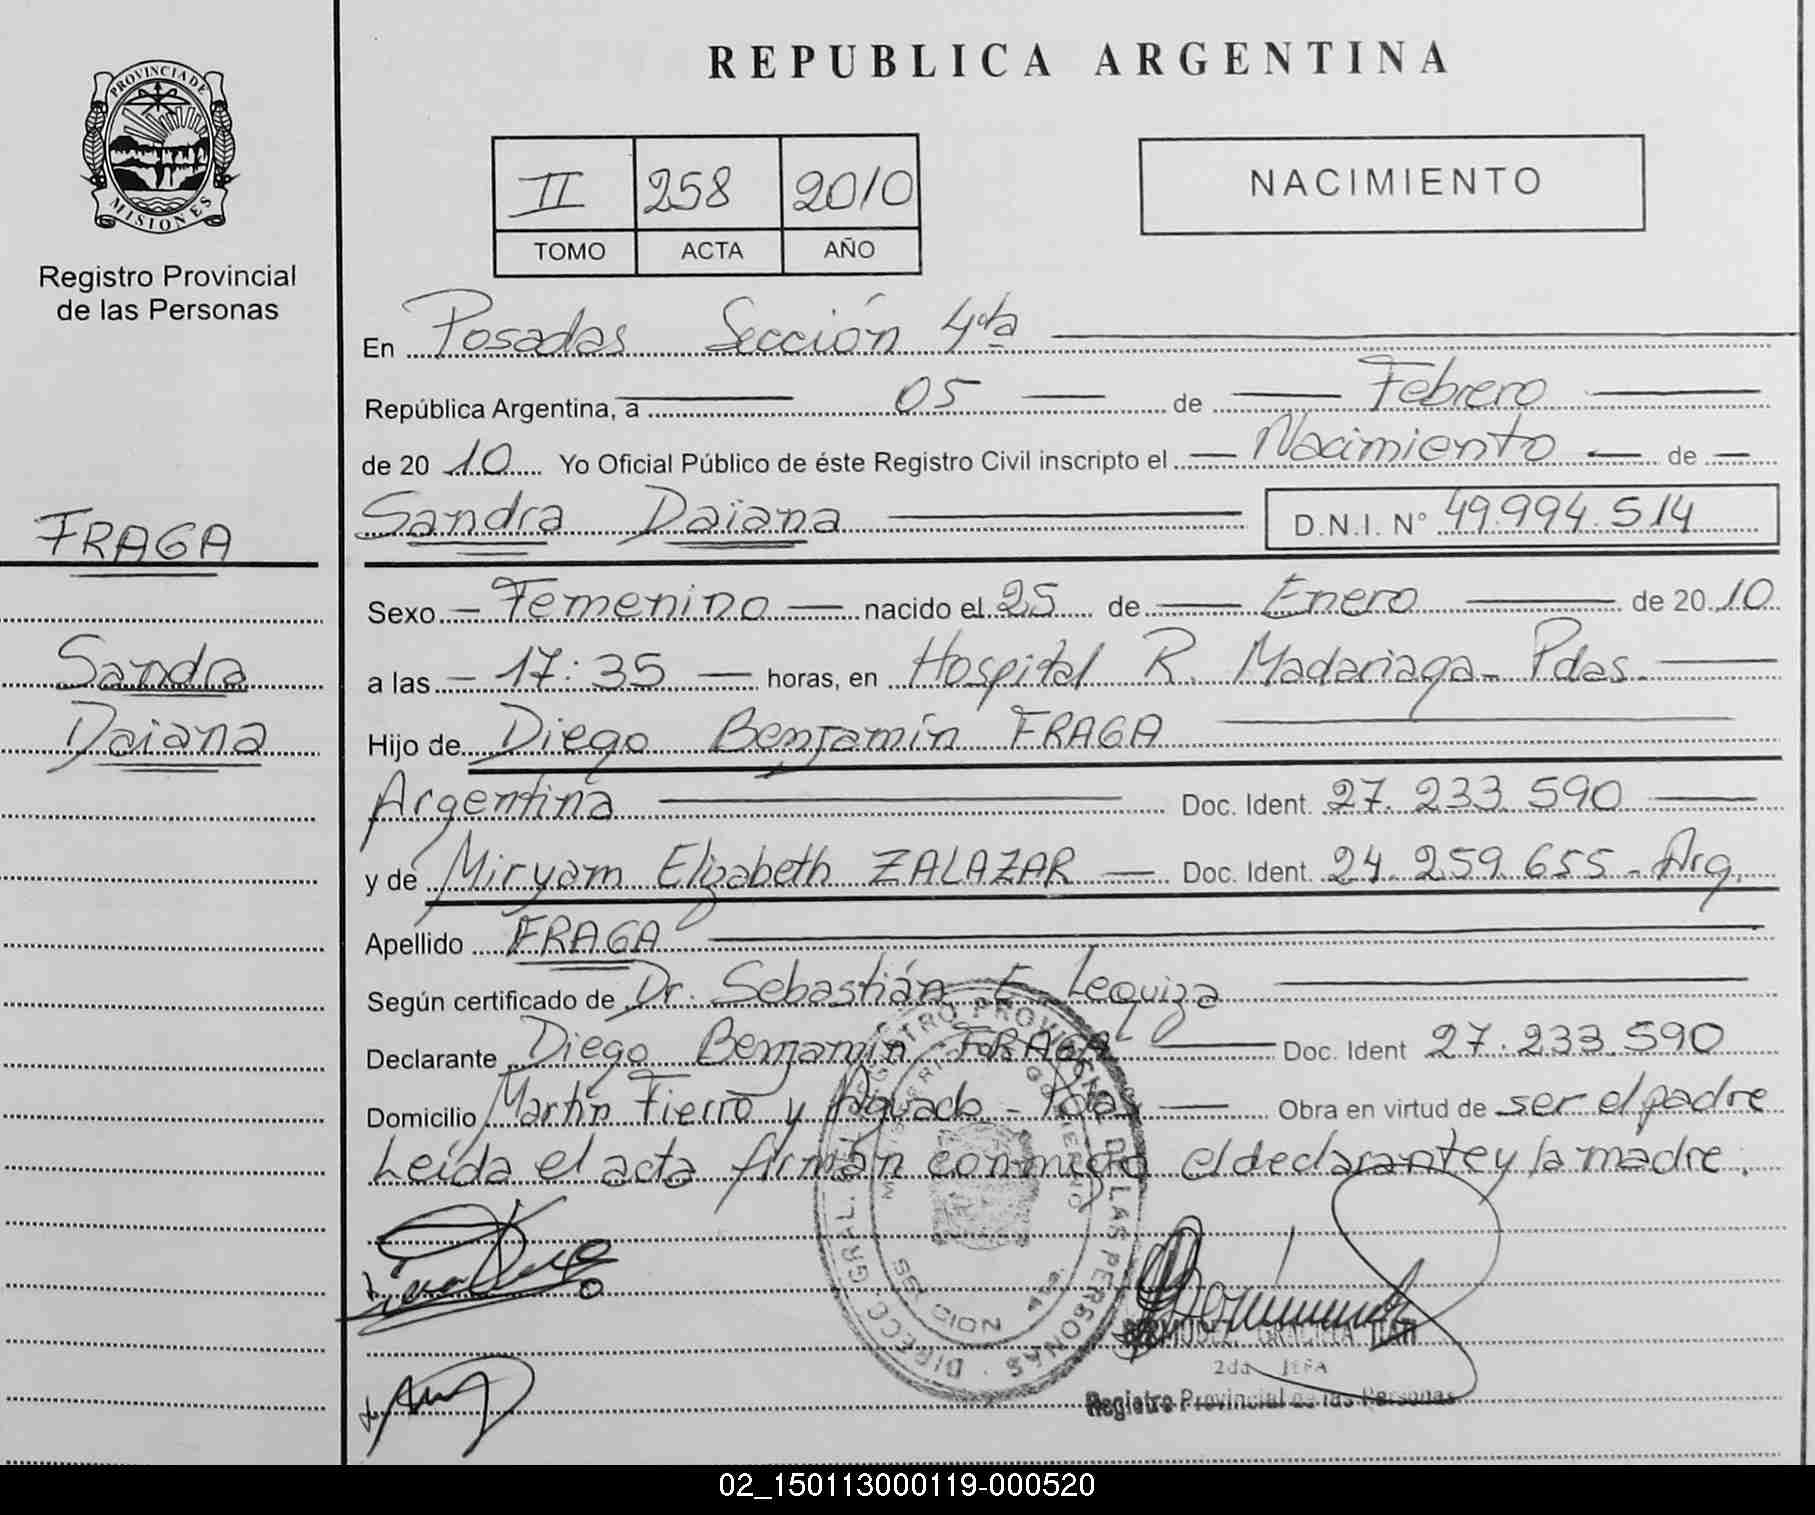 REPUBLICA ARGENTINA
PROVINCIA DE
MISIONES
Registro Provincial
de las Personas
II 258 2010
TOMO ACTA AÑO
NACIMIENTO
En Posadas Sección 4ta
República Argentina, a 05 de Febrero
de 20 10 Yo Oficial Público de éste Registro Civil inscripto el Nacimiento de
Sandra Daiana D.N.I. N° 49.994.514
FRAGA
Sandra
Daiana
Sexo Femenino nacido el 25 de Enero de 20 10
a las 17:35 horas, en Hospital R. Madariaga - Pdas.
Hijo de Diego Benjamín FRAGA
Argentina Doc. Ident. 27.233.590
y de Miryam Elizabeth ZALAZAR Doc. Ident. 24.259.655 - Arg.
Apellido FRAGA
Según certificado de Dr. Sebastián E Lequiza
Declarante Diego Benjamín FRAGA Doc. Ident 27.233.590
Domicilio Martín Fierro y Aguado - Pdas Obra en virtud de ser el padre
Leída el acta firman conmigo el declarante y la madre.
DIRECC. GRAL. REGISTRO PROVINCIAL DE LAS PERSONAS
MINISTERIO GOBIERNO
BERMUDEZ, GRACIELA
2da JEFA
Registro Provincial de las Personas
02_150113000119-000520